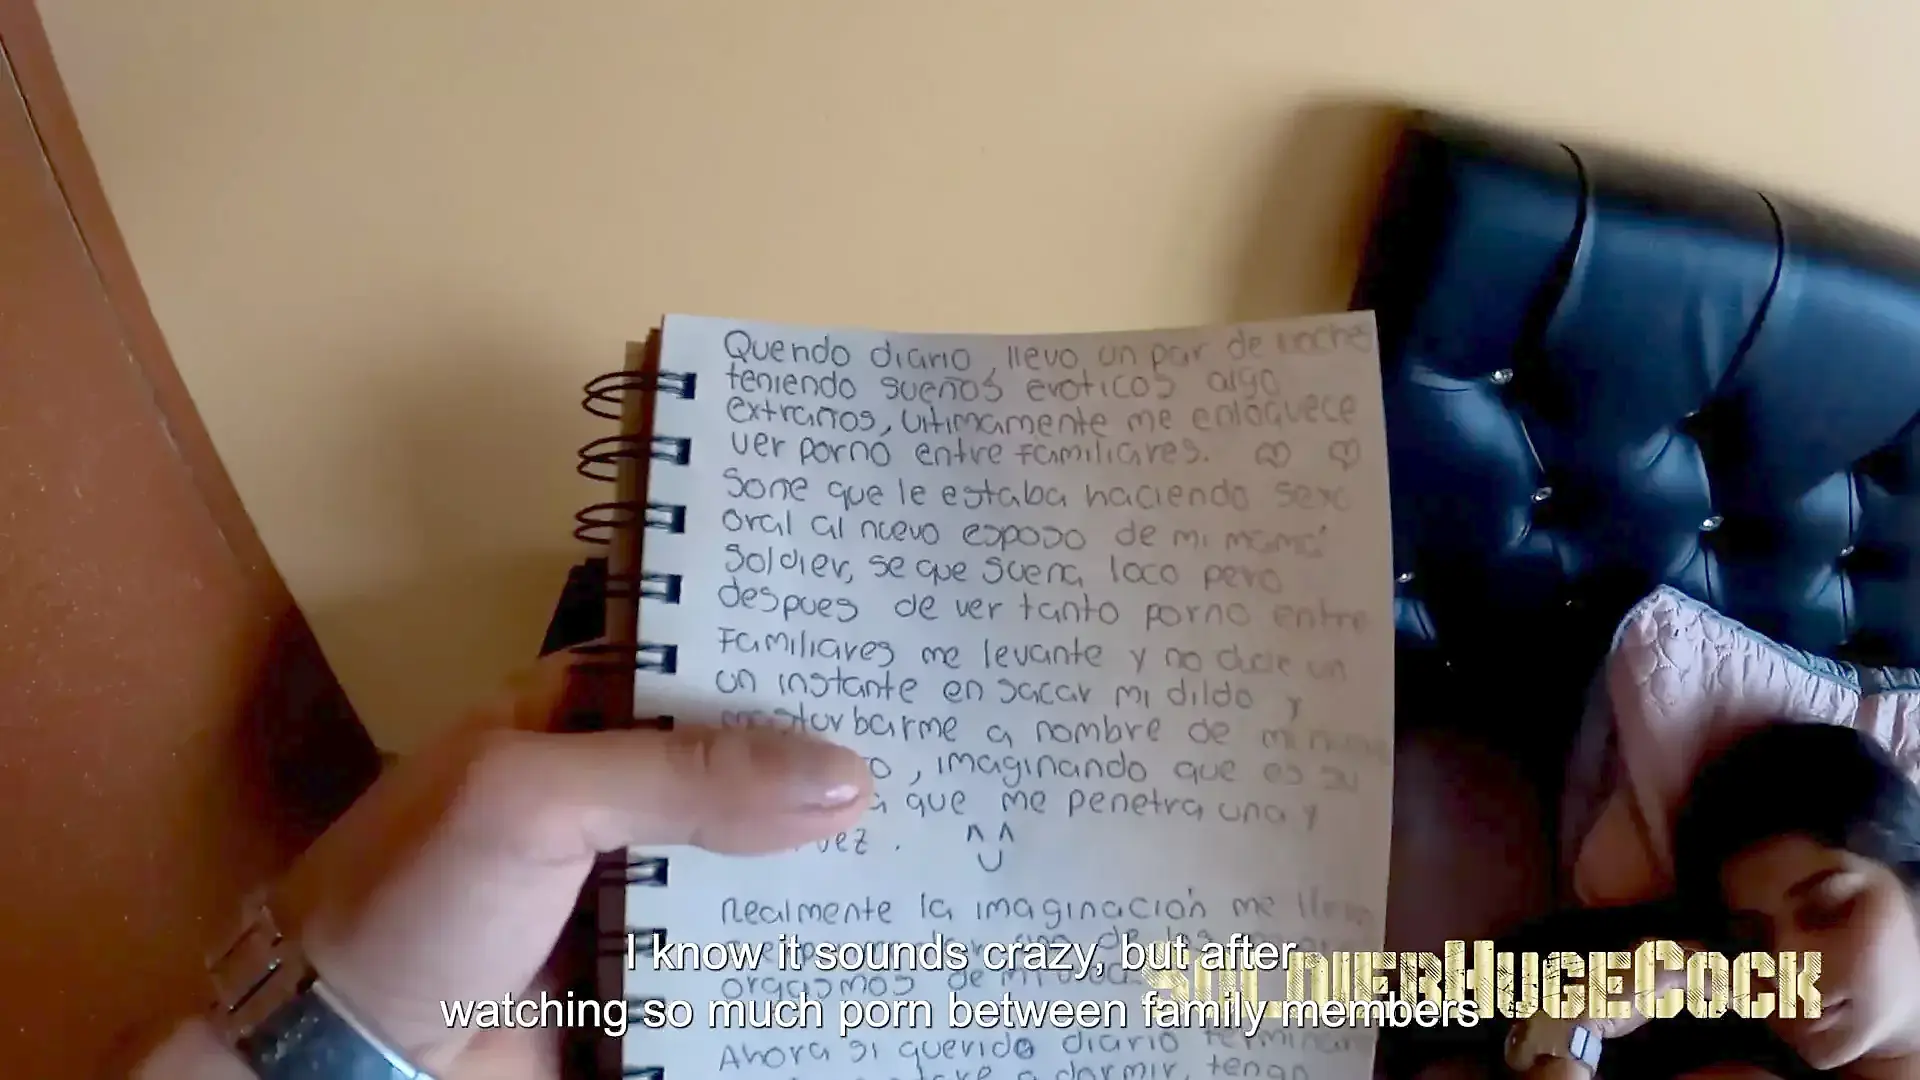 Quendo diario, llevo un par de noches
teniendo sueños eroticos algo
extraños, ultimamente me enloquece
ver porno entre familiares.
Soñe que le estaba haciendo sexo
oral al nuevo esposo de mi mamá
Soldier, se que suena loco pero
despues de ver tanto porno entre
familiares me levante y no dude un
un instante en sacar mi dildo y
masturbarme a nombre de mi
, imaginando que es su
que me penetra una y
vez.
Realmente la imaginación me
orgasmos de mi
Ahora si querido diario
a dormir, tengo
I know it sounds crazy, but after
watching so much porn between family members
SOLDIERHUGECOCK